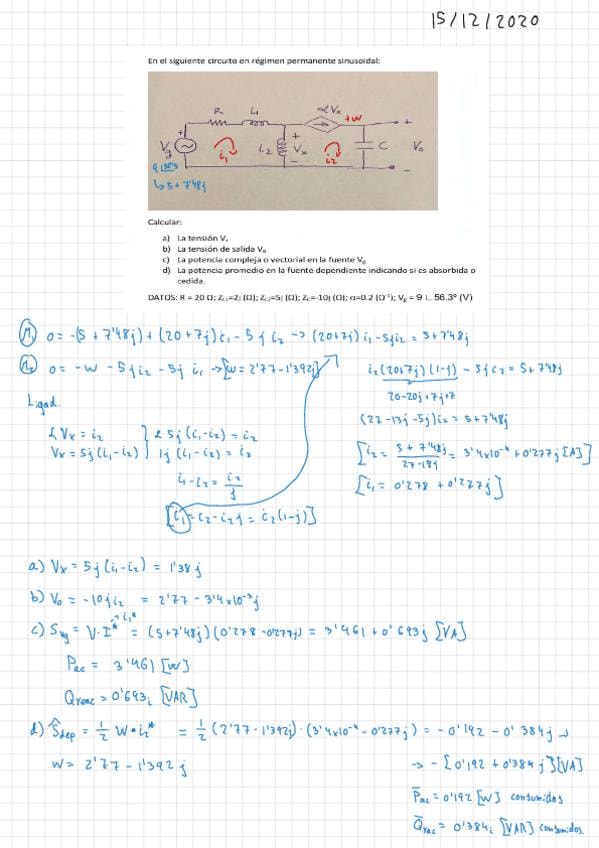 15/12/2020
En el siguiente circuito en régimen permanente sinusoidal:
R L1 αVx +w +
+ Vg i1 L2 + Vx - i2 C Vo
9∟56'3
↳ 5+7'48j -
Calcular:
a) La tensión Vx
b) La tensión de salida Vo
c) La potencia compleja o vectorial en la fuente Vg
d) La potencia promedio en la fuente dependiente indicando si es absorbida o
cedida.
DATOS: R = 20 Ω; ZL1=2j (Ω); ZL2=5j (Ω); ZC=-10j (Ω); α=0.2 (Ω⁻¹); Vg = 9 ∟ 56.3º (V)
M1) 0 = -(5 + 7'48j) + (20+7j) i1 - 5j i2 → (20+7j) i1 - 5j i2 = 5+7'48j
M2) 0 = -w - 5j i2 - 5j i1 → [w = 2'77 - 1'392j]
Ligad.
αVx = i2
Vx = 5j (i1-i2)
α 5j (i1-i2) = i2
1j (i1-i2) = i2
i1 - i2 = i2/j
[i1 = i2 - i2 j = i2 (1-j)]
i2 (20+7j) (1-j) - 5j i2 = 5+7'48j
20-20j+7j+7
(27-13j-5j) i2 = 5+7'48j
[i2 = 5+7'48j / 27-18j = 3'4x10⁻⁴ + 0'277j [A]]
[i1 = 0'278 + 0'277j]
a) Vx = 5j (i1-i2) = 1'38j
b) Vo = -10j i2 = 2'77 - 3'4x10⁻³j
c) Svg = V·I* → i1* = (5+7'48j) (0'278 - 0'277j) = 3'461 + 0'693j [VA]
Pac = 3'461 [W]
Qreac = 0'693j [VAR]
d) Ŝdep = 1/2 W • i2* = 1/2 (2'77 - 1'392j) · (3'4x10⁻⁴ - 0'277j) = -0'192 - 0'384j →
W = 2'77 - 1'392j
→ - [0'192 + 0'384j] [VA]
P̄ac = 0'192 [W] consumidos
Q̄reac = 0'384j [VAR] consumidos